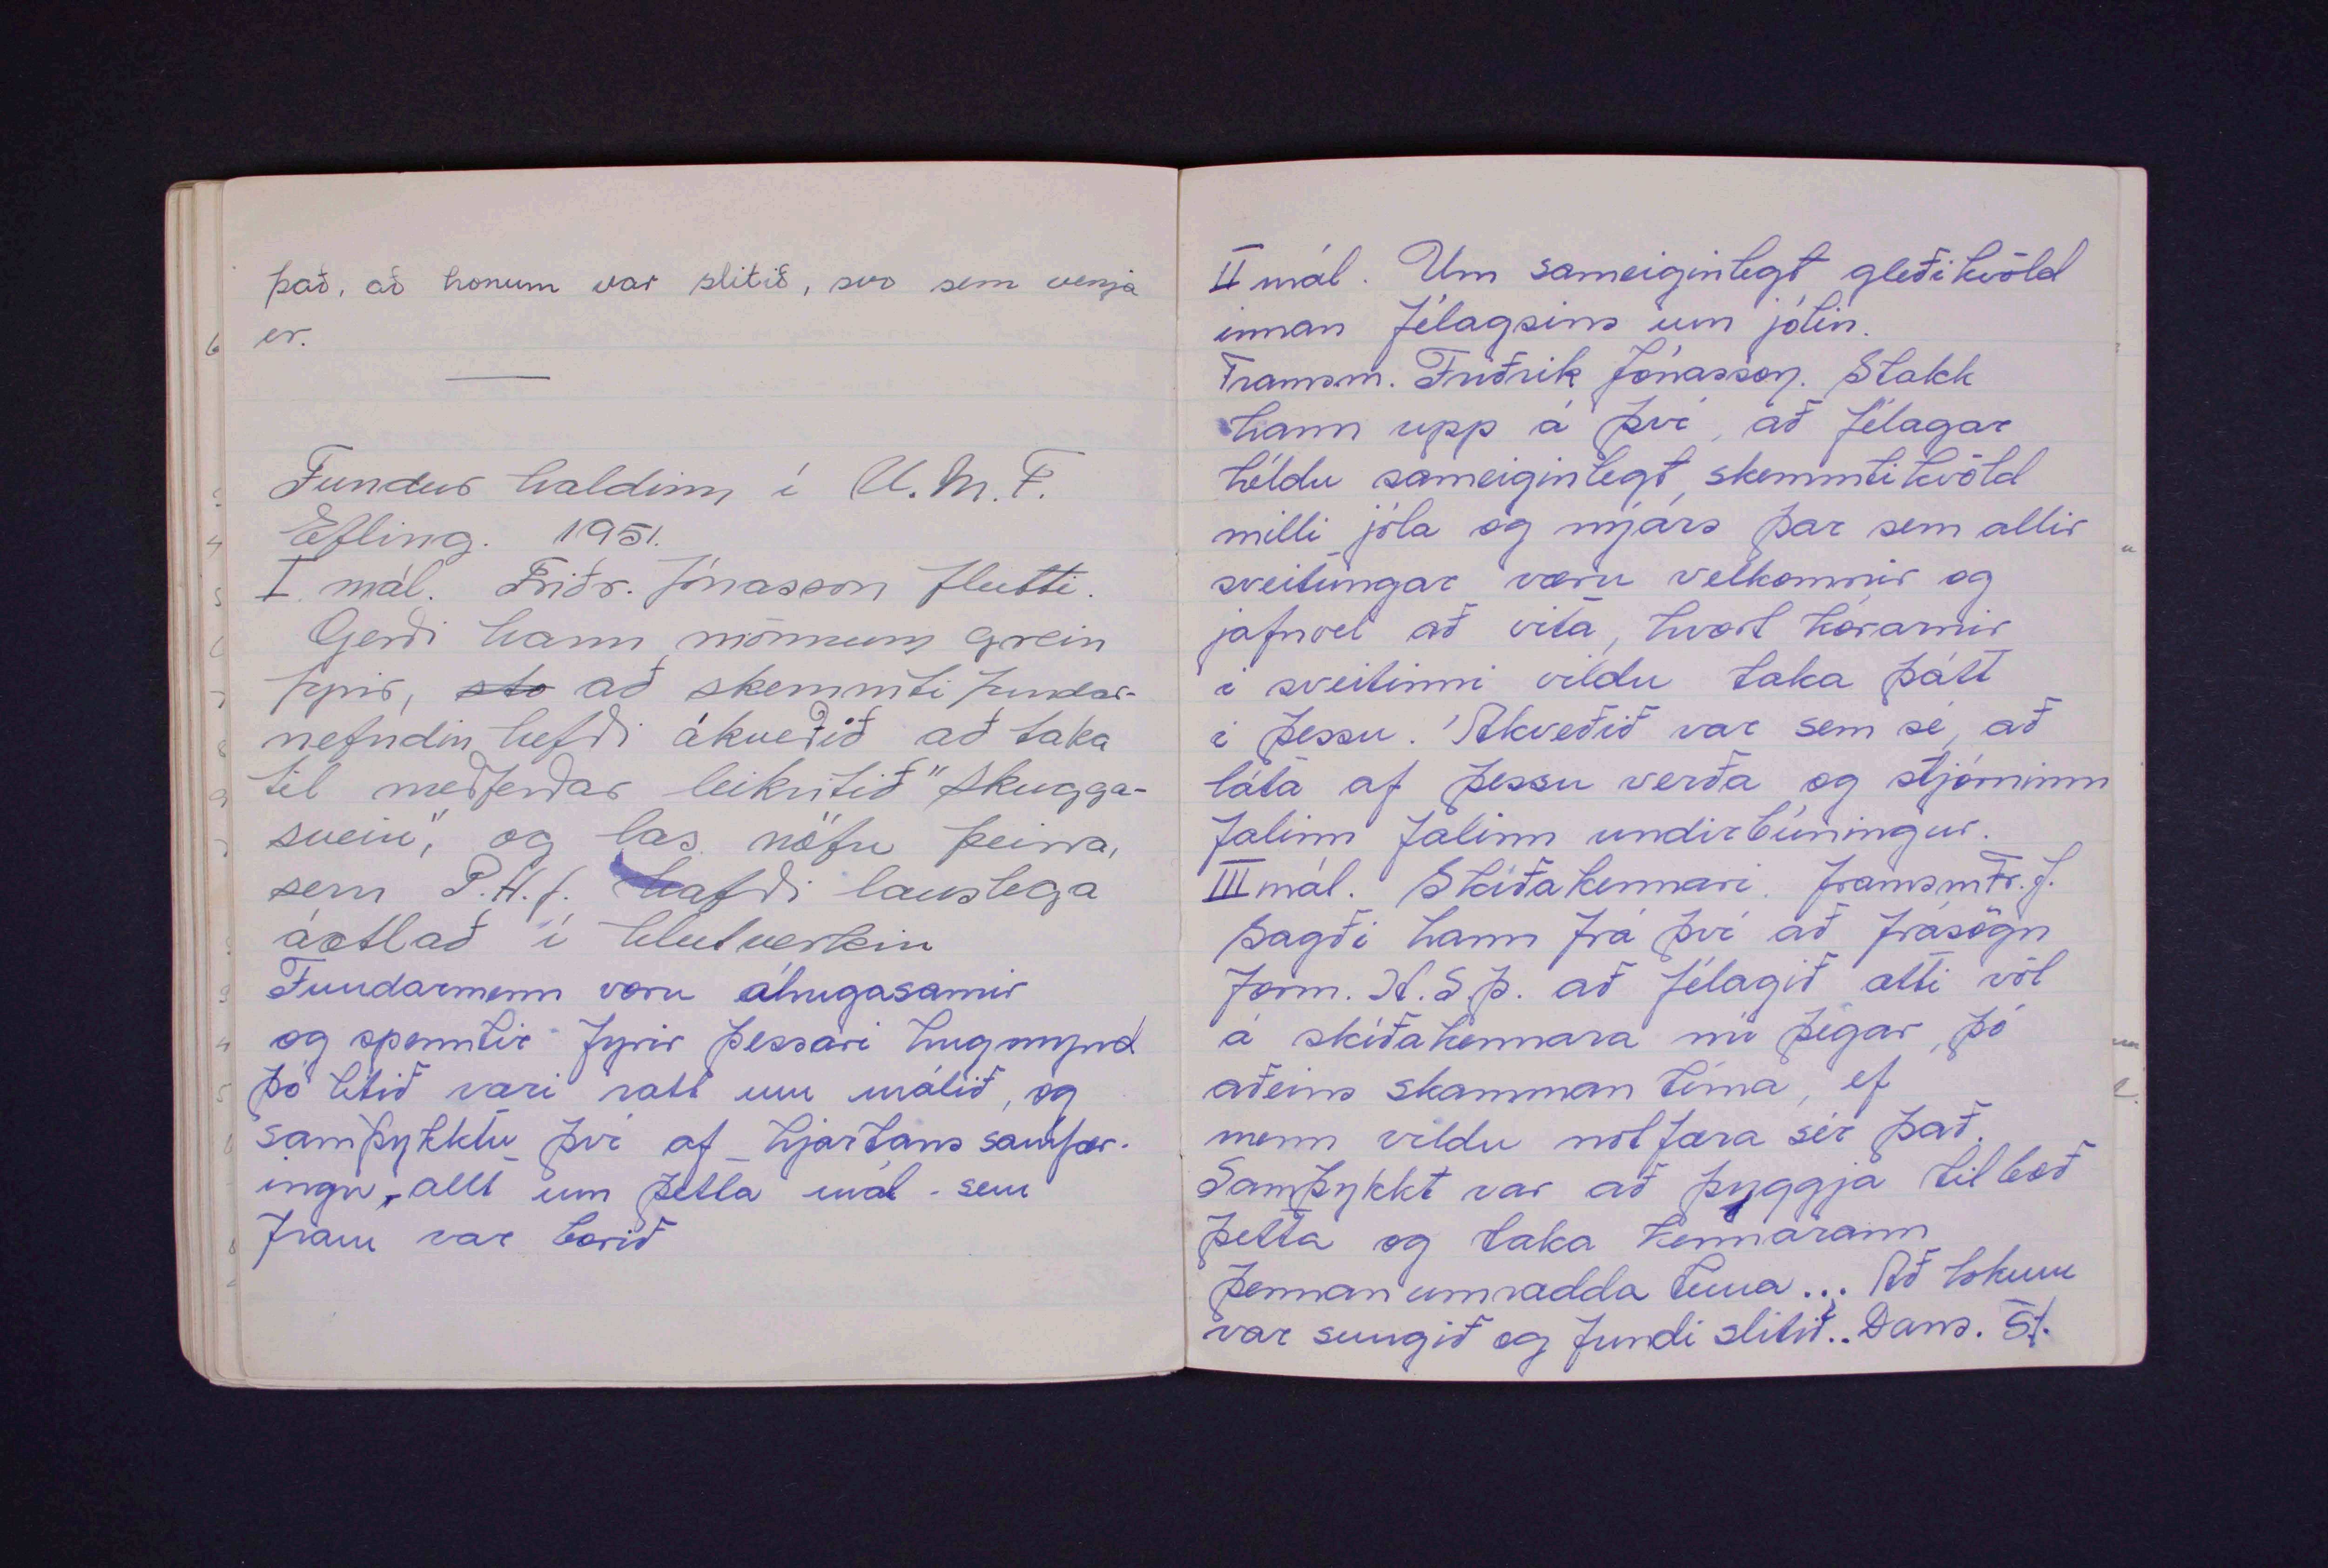 það, að honum var slitið, svo sem venja
er.
Fundur haldinn í U.M.F.
Efling. 1951.
I mál. Friðr. Jónasson flutti.
Gerði hann mönnum grein
fyrir, sto að skemmti fundar-
nefndin hefði ákveðið að taka
til meðferðar leikritið "Skugga-
svein", og las nöfn þeirra,
sem P.H.J. hafði lauslega
áætlað í hlutverkin
Fundarmenn voru áhugasamir
og spenntir fyrir þessari hugmynd
þó litið væri rætt um málið, og
samþykktu því af hjartans sannfær-
ingu, allt um þetta mál sem
fram var borið
II mál. Um sameiginlegt gleðikvöld
innan félagsins um jólin.
Framsm. Friðrik Jónasson. Stakk
hann upp á því, að félagar
héldu sameiginlegt, skemmtikvöld
milli jóla og nýárs þar sem allir
sveitungar væru velkomnir og
jafnvel að vita, hvort kórarnir
í sveitinni vildu taka þátt
í þessu. Ákveðið var sem sé, að
láta af þessu verða og stjórninni
falinn falinn undirbúningur.
III mál. Skíðakennari. framsm Fr. J.
Sagði hann frá því að frásögn
form. H.S.Þ. að félagið ætti völ
á skíðakennara nú þegar, þó
aðeins skamman tíma, ef
menn vildu notfæra sér það.
Samþykkt var að þyggja tilboð
þetta og taka kennarann
þennan umrædda tíma... Að lokum
var sungið og fundi slitið.. Dans. St.